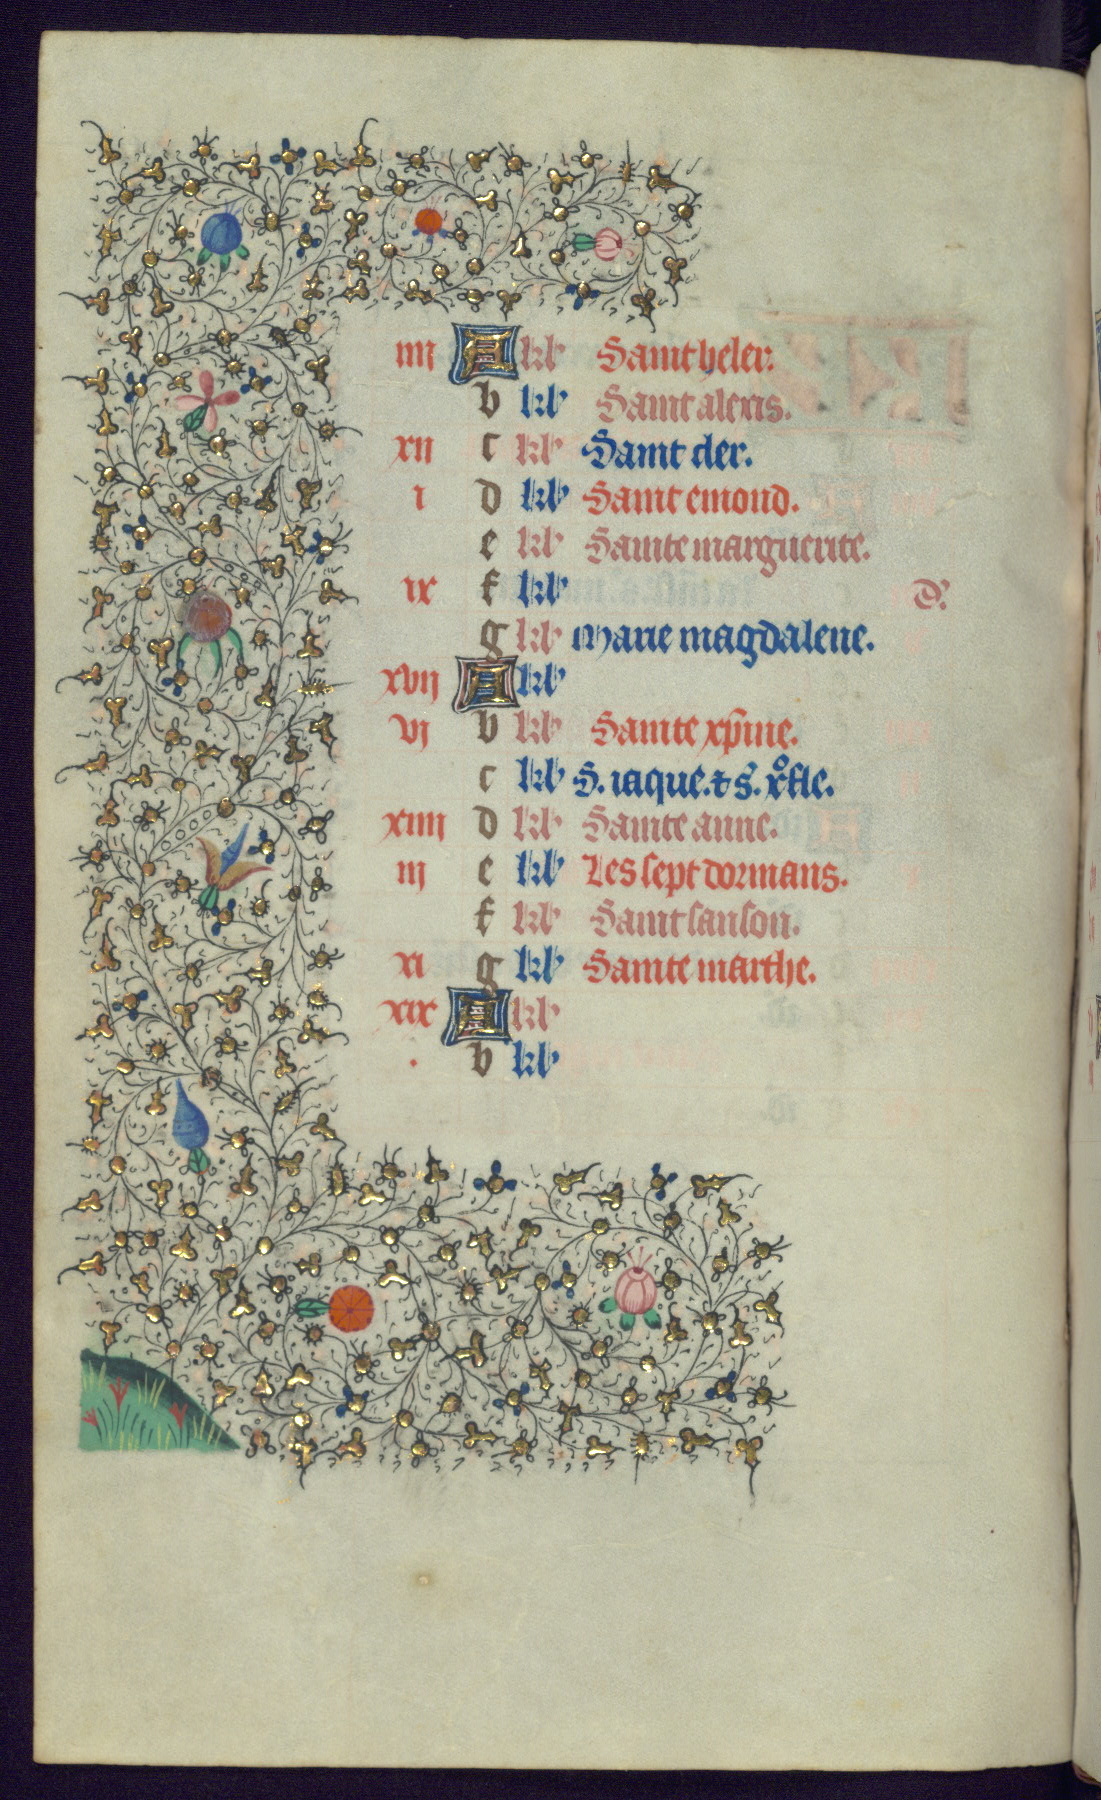 iiii A kl' Saint heler.
b kl' Saint alexis.
xii c kl' Saint cler.
i d kl' Saint emond.
e kl' Sainte marguerite.
ix f kl' d'.
g kl' Marie magdalene.
xvii A kl'
vi b kl' Sainte xp̄ine.
c kl' S. iaque. & s. xo̊fle.
xiiii d kl' Sainte anne.
iii e kl' Les sept dormans.
f kl' Saint sanson.
xi g kl' Sainte marthe.
xix A kl'
. b kl'